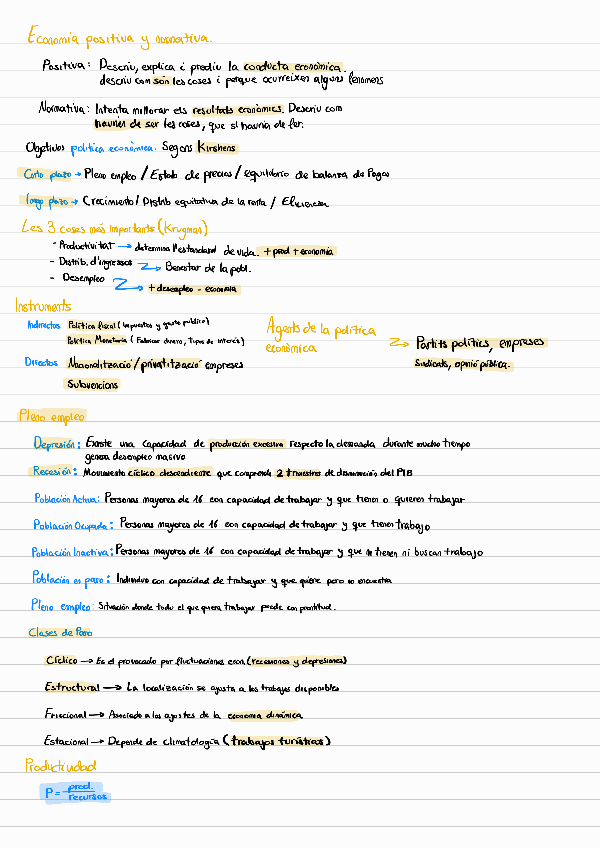 Economia positiva y normativa.
Positiva: Descriu, explica i prediu la conducta econòmica.
descriu com són les coses i perque ocurreixen alguns fenomens
Normativa: Intenta millorar els resultats econòmics. Descriu com
haurien de ser les coses, que si hauria de fer.
Objetivos política econòmica. Segons Kirshens
Corto plazo → Pleno empleo / Estab de precios / equilibrio de balanza de Pagos
Largo plazo → Crecimiento / Distrib equitativa de la renta / Eficiencia
Les 3 coses més importants (Krugman)
- Productivitat → determina l'estandard de vida. + prod + economia
- Distrib. d'ingressos → Benestar de la pobl.
- Desempleo → + desempleo - economia
Instruments
Indirectos Política fiscal (Impuestos y gasto público)
Política Monetaria (Fabricar dinero, tipos de interés)
Directos Nacionalització / privatització empreses
Subvencions
Agents de la política
econòmica → Partits polítics, empreses
Sindicats, opinió pública.
Pleno empleo
Depresión: Existe una capacidad de producción excesiva respecto la demanda durante mucho tiempo
genera desempleo masivo
Recesión: Movimiento cíclico descendiente que comprende 2 trimestres de disminución del PIB
Población Activa: Personas mayores de 16 con capacidad de trabajar y que tienen o quieren trabajar
Población Ocupada: Personas mayores de 16 con capacidad de trabajar y que tienen trabajo
Población Inactiva: Personas mayores de 16 con capacidad de trabajar y que no tienen ni buscan trabajo
Población en paro: Individuo con capacidad de trabajar y que quiere pero no encuentra
Pleno empleo: Situación donde todo el que quiera trabajar puede con prontitud.
Clases de Paro
Cíclico → Es el provocado por fluctuaciones econ. (recesiones y depresiones)
Estructural → La localización se ajusta a los trabajos disponibles
Friccional → Asociado a los ajustes de la economía dinámica
Estacional → Depende de climatología (trabajos turísticos)
Productividad
P = prod. / recursos